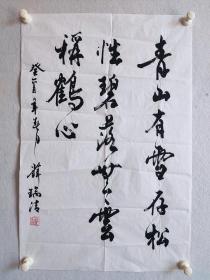 青山有雪存松
性碧落無雲
稱鶴心
癸亥年春月 薛瑞清